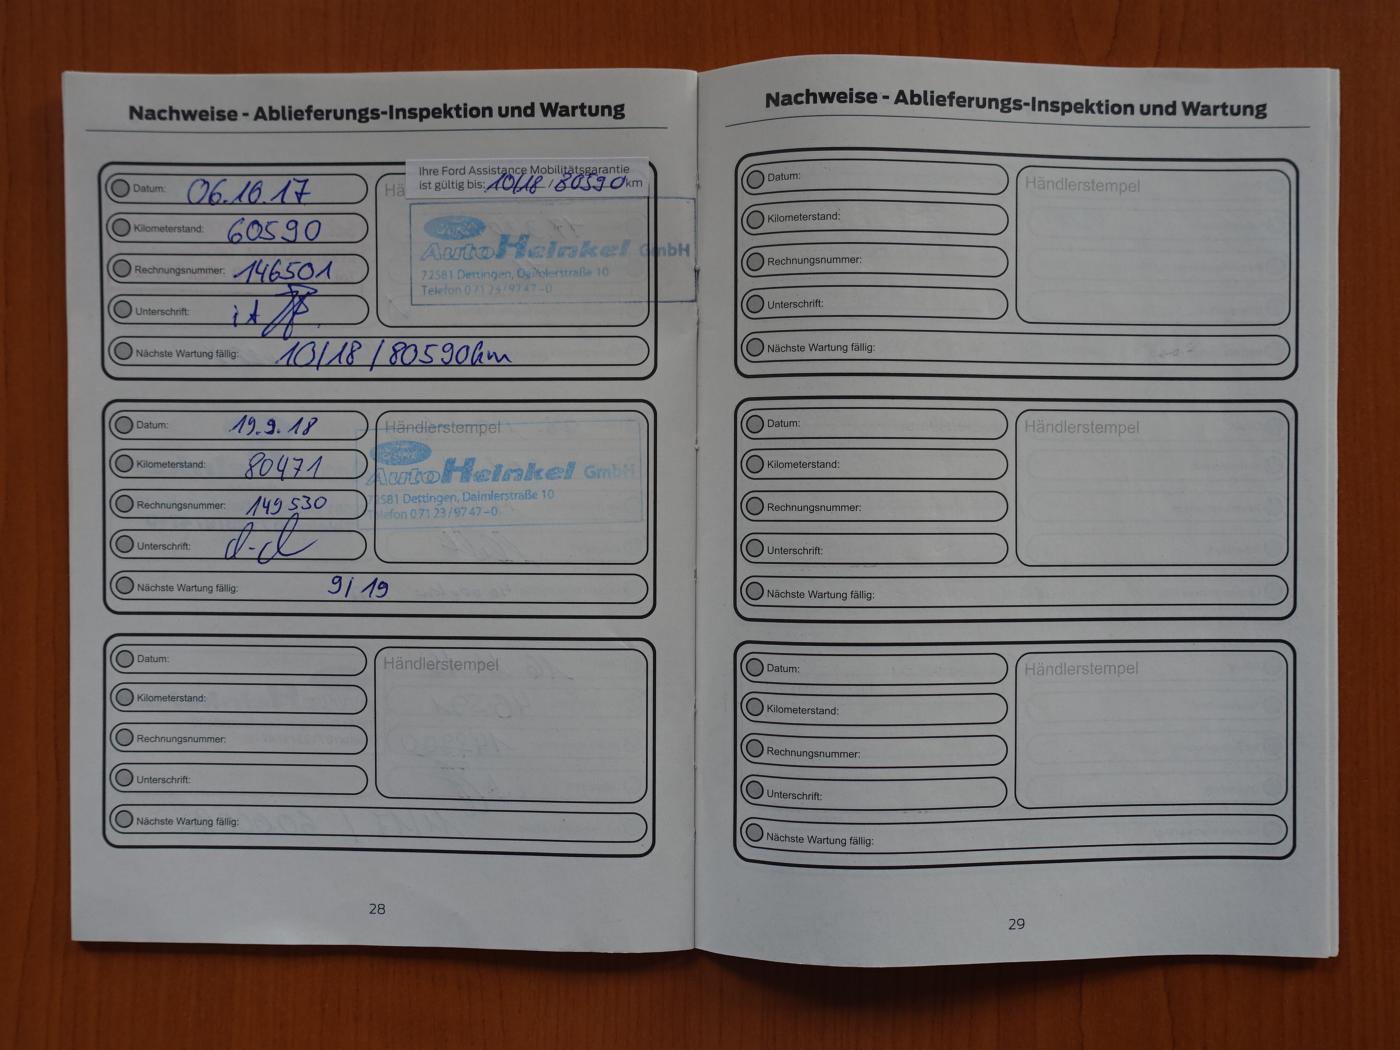 Nachweise - Ablieferungs-Inspektion und Wartung
Datum: 06.10.17
Kilometerstand: 60590
Rechnungsnummer: 146501
Unterschrift:
Nächste Wartung fällig: 10/18 / 80590km
Ihre Ford Assistance Mobilitätsgarantie
ist gültig bis: 10/18 / 80590 km
Auto Heinkel GmbH
72581 Dettingen, Daimlerstraße 10
Telefon 0 71 23 / 97 47 - 0
Datum: 19.9.18
Kilometerstand: 80471
Rechnungsnummer: 149530
Unterschrift:
Nächste Wartung fällig: 9/19
Händlerstempel
Auto Heinkel GmbH
72581 Dettingen, Daimlerstraße 10
Telefon 0 71 23 / 97 47 - 0
Datum:
Kilometerstand:
Rechnungsnummer:
Unterschrift:
Nächste Wartung fällig:
Händlerstempel
28
Nachweise - Ablieferungs-Inspektion und Wartung
Datum:
Kilometerstand:
Rechnungsnummer:
Unterschrift:
Nächste Wartung fällig:
Händlerstempel
Datum:
Kilometerstand:
Rechnungsnummer:
Unterschrift:
Nächste Wartung fällig:
Händlerstempel
Datum:
Kilometerstand:
Rechnungsnummer:
Unterschrift:
Nächste Wartung fällig:
Händlerstempel
29